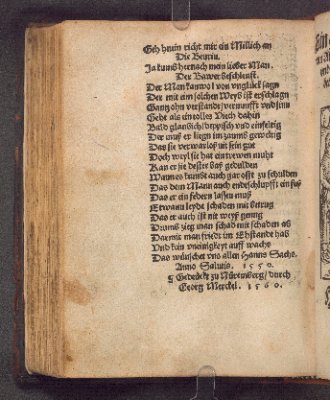 Geh hnein richt mir ein Millich an
Die Bewrin.
Ja kumb hernach mein lieber Man.
Der Bawer beschleust.
Der Man kan wol von unglück sagn
Der mit eim solchen Weyb ist erschlagn
Gantz ohn verstandt/vernunfft und sinn
Gehe als ein tolles Viech dahin
Bald glaubich/deppisch und einfeltig
Der muß er ligen im zaume gweltig
Das sie verwarloß nit sein gut
Doch weyl sie hat ein trewen muht
Kan er sie dester baß gedulden
Wann es kumbt auch gar offt zu schulden
Das dem Mann auch endschlupfft ein fuß
Das er ein federn lassen muß
Etwann leyde schaden mit betrug
Das er auch ist nit weyß genug
Drumb zieg man schad mit schaden ab
Darmit man fried im Ehstande hab
Und kein uneinigkeyt auff wachs
Das wünschet uns allen Hanns Sachs.
Anno Salutis. 1550.
¶ Gedrückt zu Nürenberg/durch
Georg Merckel. 1560.